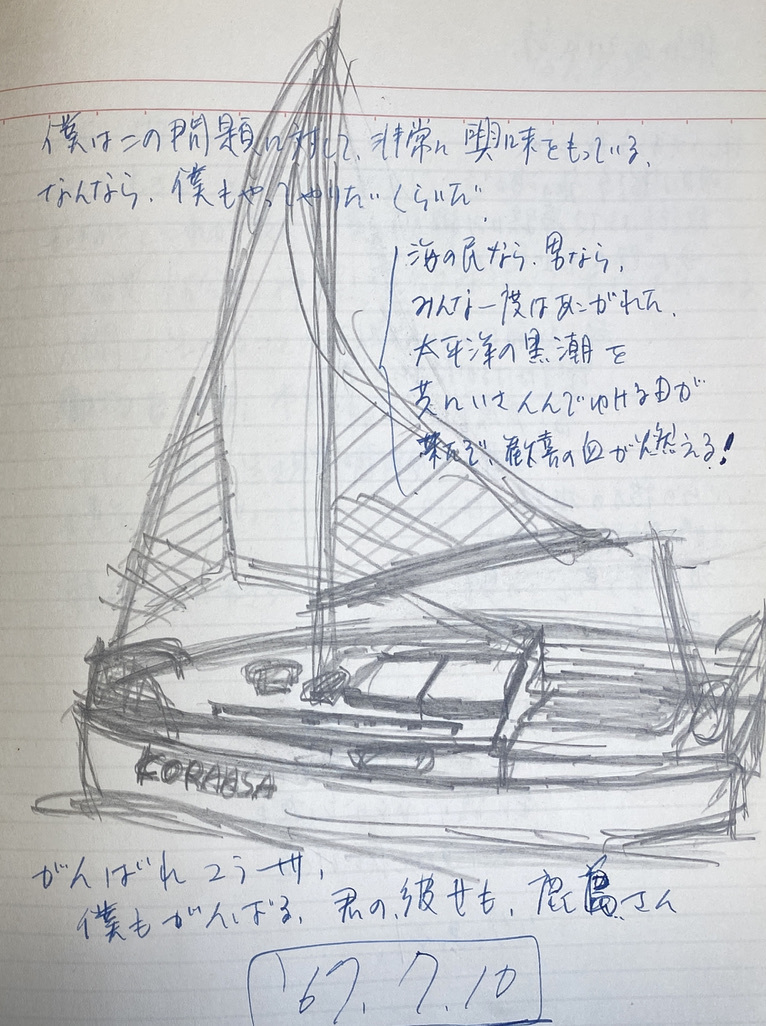 僕はこの問題に対して、非常に興味をもっている。
なんなら、僕もやってやりたいくらいだ。
海の民なら、男なら、
みんな一度はあこがれた、
太平洋の黒潮を
共にいさんでゆける日が
来たぞ、歓喜の血が燃える!
KORAASA
がんばれコラーサ、
僕もがんばる、君の彼女も、鹿島さん
'67.7.10